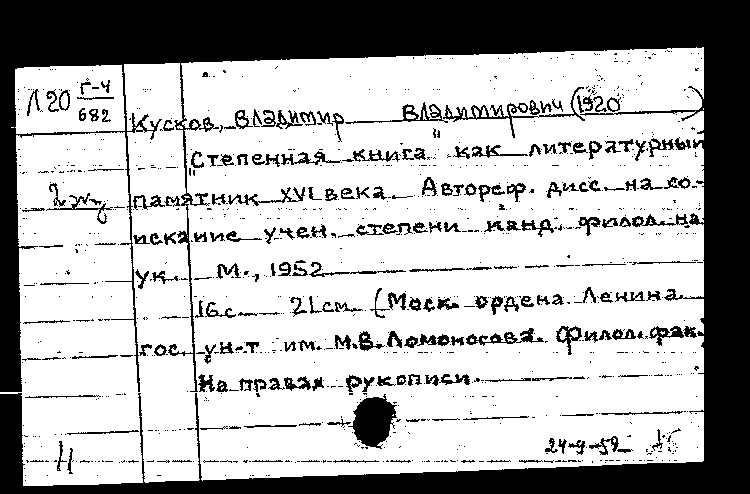 Л20 Г-4
682
Кусков, Владимир Владимирович (1920 )
"Степенная книга" как литературный
памятник XVI века. Автореф. дисс. на со-
искание учен. степени канд. филол. на
ук. М., 1952
16 с. 21 см. (Моск. ордена Ленина
гос. ун-т им. М.В. Ломоносова. Филол. фак.)
На правах рукописи.
24-9-52